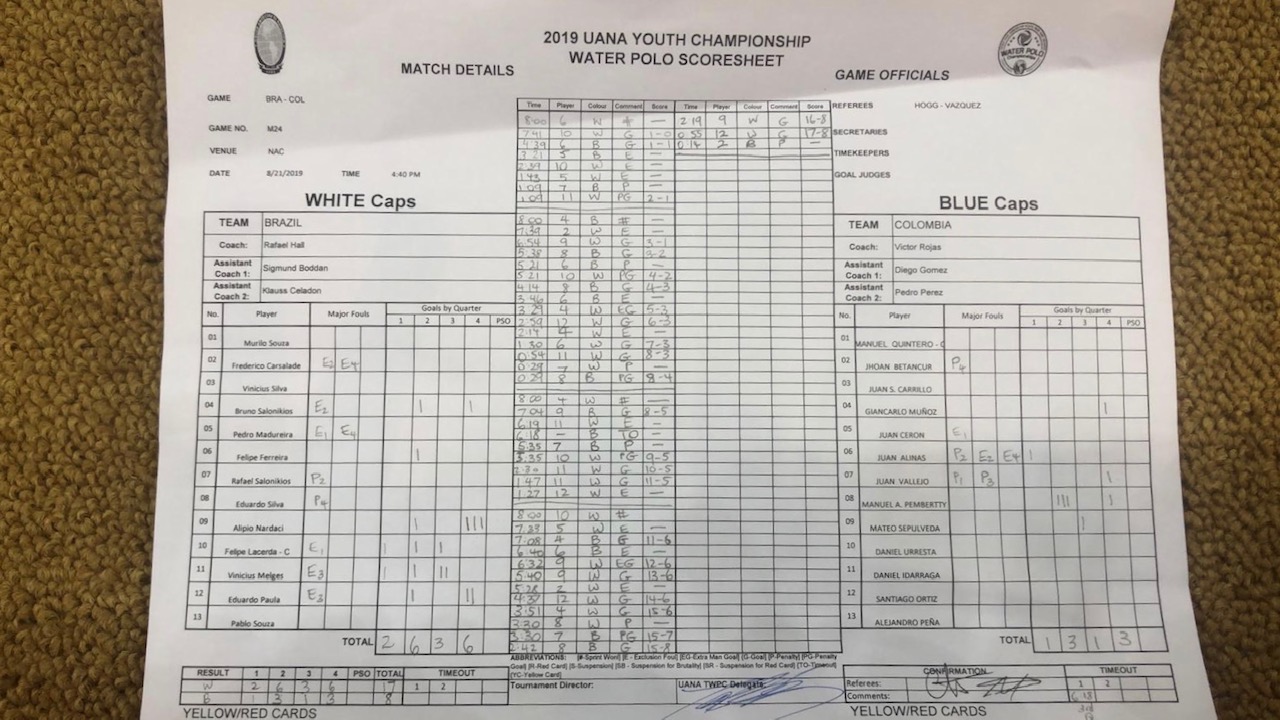 2019 UANA YOUTH CHAMPIONSHIP
WATER POLO SCORESHEET
MATCH DETAILS
GAME OFFICIALS
WATER POLO
GAME BRA - COL
GAME NO. M24
VENUE NAC
DATE 8/21/2019 TIME 4:40 PM
REFEREES HOGG - VAZQUEZ
SECRETARIES
TIMEKEEPERS
GOAL JUDGES
WHITE Caps
TEAM BRAZIL
Coach: Rafael Hall
Assistant Coach 1: Sigmund Boddan
Assistant Coach 2: Klauss Celadon
No. Player Major Fouls Goals by Quarter
1 2 3 4 PSO
01 Murilo Souza
02 Frederico Carsalade E2 E4
03 Vinicius Silva
04 Bruno Salonikios E2 | |
05 Pedro Madureira E1 E4
06 Felipe Ferreira |
07 Rafael Salonikios P2
08 Eduardo Silva P4
09 Alipio Nardaci | |||
10 Felipe Lacerda - C E1 | | |
11 Vinicius Melges E3 | | ||
12 Eduardo Paula E3 | ||
13 Pablo Souza
TOTAL 2 6 3 6
RESULT 1 2 3 4 PSO TOTAL TIMEOUT
W 2 6 3 6 1 2
B 1 3 1 3 8
YELLOW/RED CARDS
Time Player Colour Comment Score
8:00 6 W # —
7:41 10 W G 1-0
4:39 6 B G 1-1
3:21 5 B E —
2:39 10 W E —
1:43 5 W E —
1:09 7 B P —
1:09 11 W PG 2-1
8:00 4 B # —
7:39 2 W E —
6:54 9 W G 3-1
5:38 8 B G 3-2
5:21 6 B P —
5:21 10 W PG 4-2
4:14 8 B G 4-3
3:46 6 B E —
3:29 4 W EG 5-3
2:59 12 W G 6-3
2:14 4 W E —
1:30 6 W G 7-3
0:54 11 W G 8-3
0:29 7 W P —
0:29 8 B PG 8-4
8:00 4 W # —
7:04 9 B G 8-5
6:19 11 W E —
6:18 — B TO —
5:35 7 B P —
5:35 10 W PG 9-5
2:30 11 W G 10-5
1:47 11 W G 11-5
1:27 12 W E —
8:00 10 W #
7:39 5 W E —
7:08 4 B G 11-6
6:40 6 B E —
6:32 9 W EG 12-6
5:40 9 W G 13-6
5:28 2 W E —
4:37 12 W G 14-6
3:51 4 W G 15-6
3:30 8 W P —
3:30 7 B PG 15-7
2:42 8 B G 15-8
Time Player Colour Comment Score
2:19 9 W G 16-8
0:55 12 W G 17-8
0:14 2 B P —
ABBREVIATIONS: [#-Sprint Won] [E - Exclusion Foul] [EG-Extra Man Goal] [G-Goal] [P-Penalty] [PG-Penalty
Goal] [R-Red Card] [S-Suspension] [SB - Suspension for Brutality] [SR - Suspension for Red Card] [TO-Timeout]
[YC-Yellow Card]
Tournament Director: UANA TWPC Delegate:
BLUE Caps
TEAM COLOMBIA
Coach: Victor Rojas
Assistant Coach 1: Diego Gomez
Assistant Coach 2: Pedro Perez
No. Player Major Fouls Goals by Quarter
1 2 3 4 PSO
01 MANUEL QUINTERO -
02 JHOAN BETANCUR P4
03 JUAN S. CARRILLO
04 GIANCARLO MUÑOZ |
05 JUAN CERON E1
06 JUAN ALINAS P2 E2 E4 |
07 JUAN VALLEJO P1 P3 |
08 MANUEL A. PEMBERTTY ||| |
09 MATEO SEPULVEDA |
10 DANIEL URRESTA
11 DANIEL IDARRAGA
12 SANTIAGO ORTIZ
13 ALEJANDRO PEÑA
TOTAL 1 3 1 3
CONFIRMATION TIMEOUT
Referees: 1 2
Comments: 6:18
YELLOW/RED CARDS